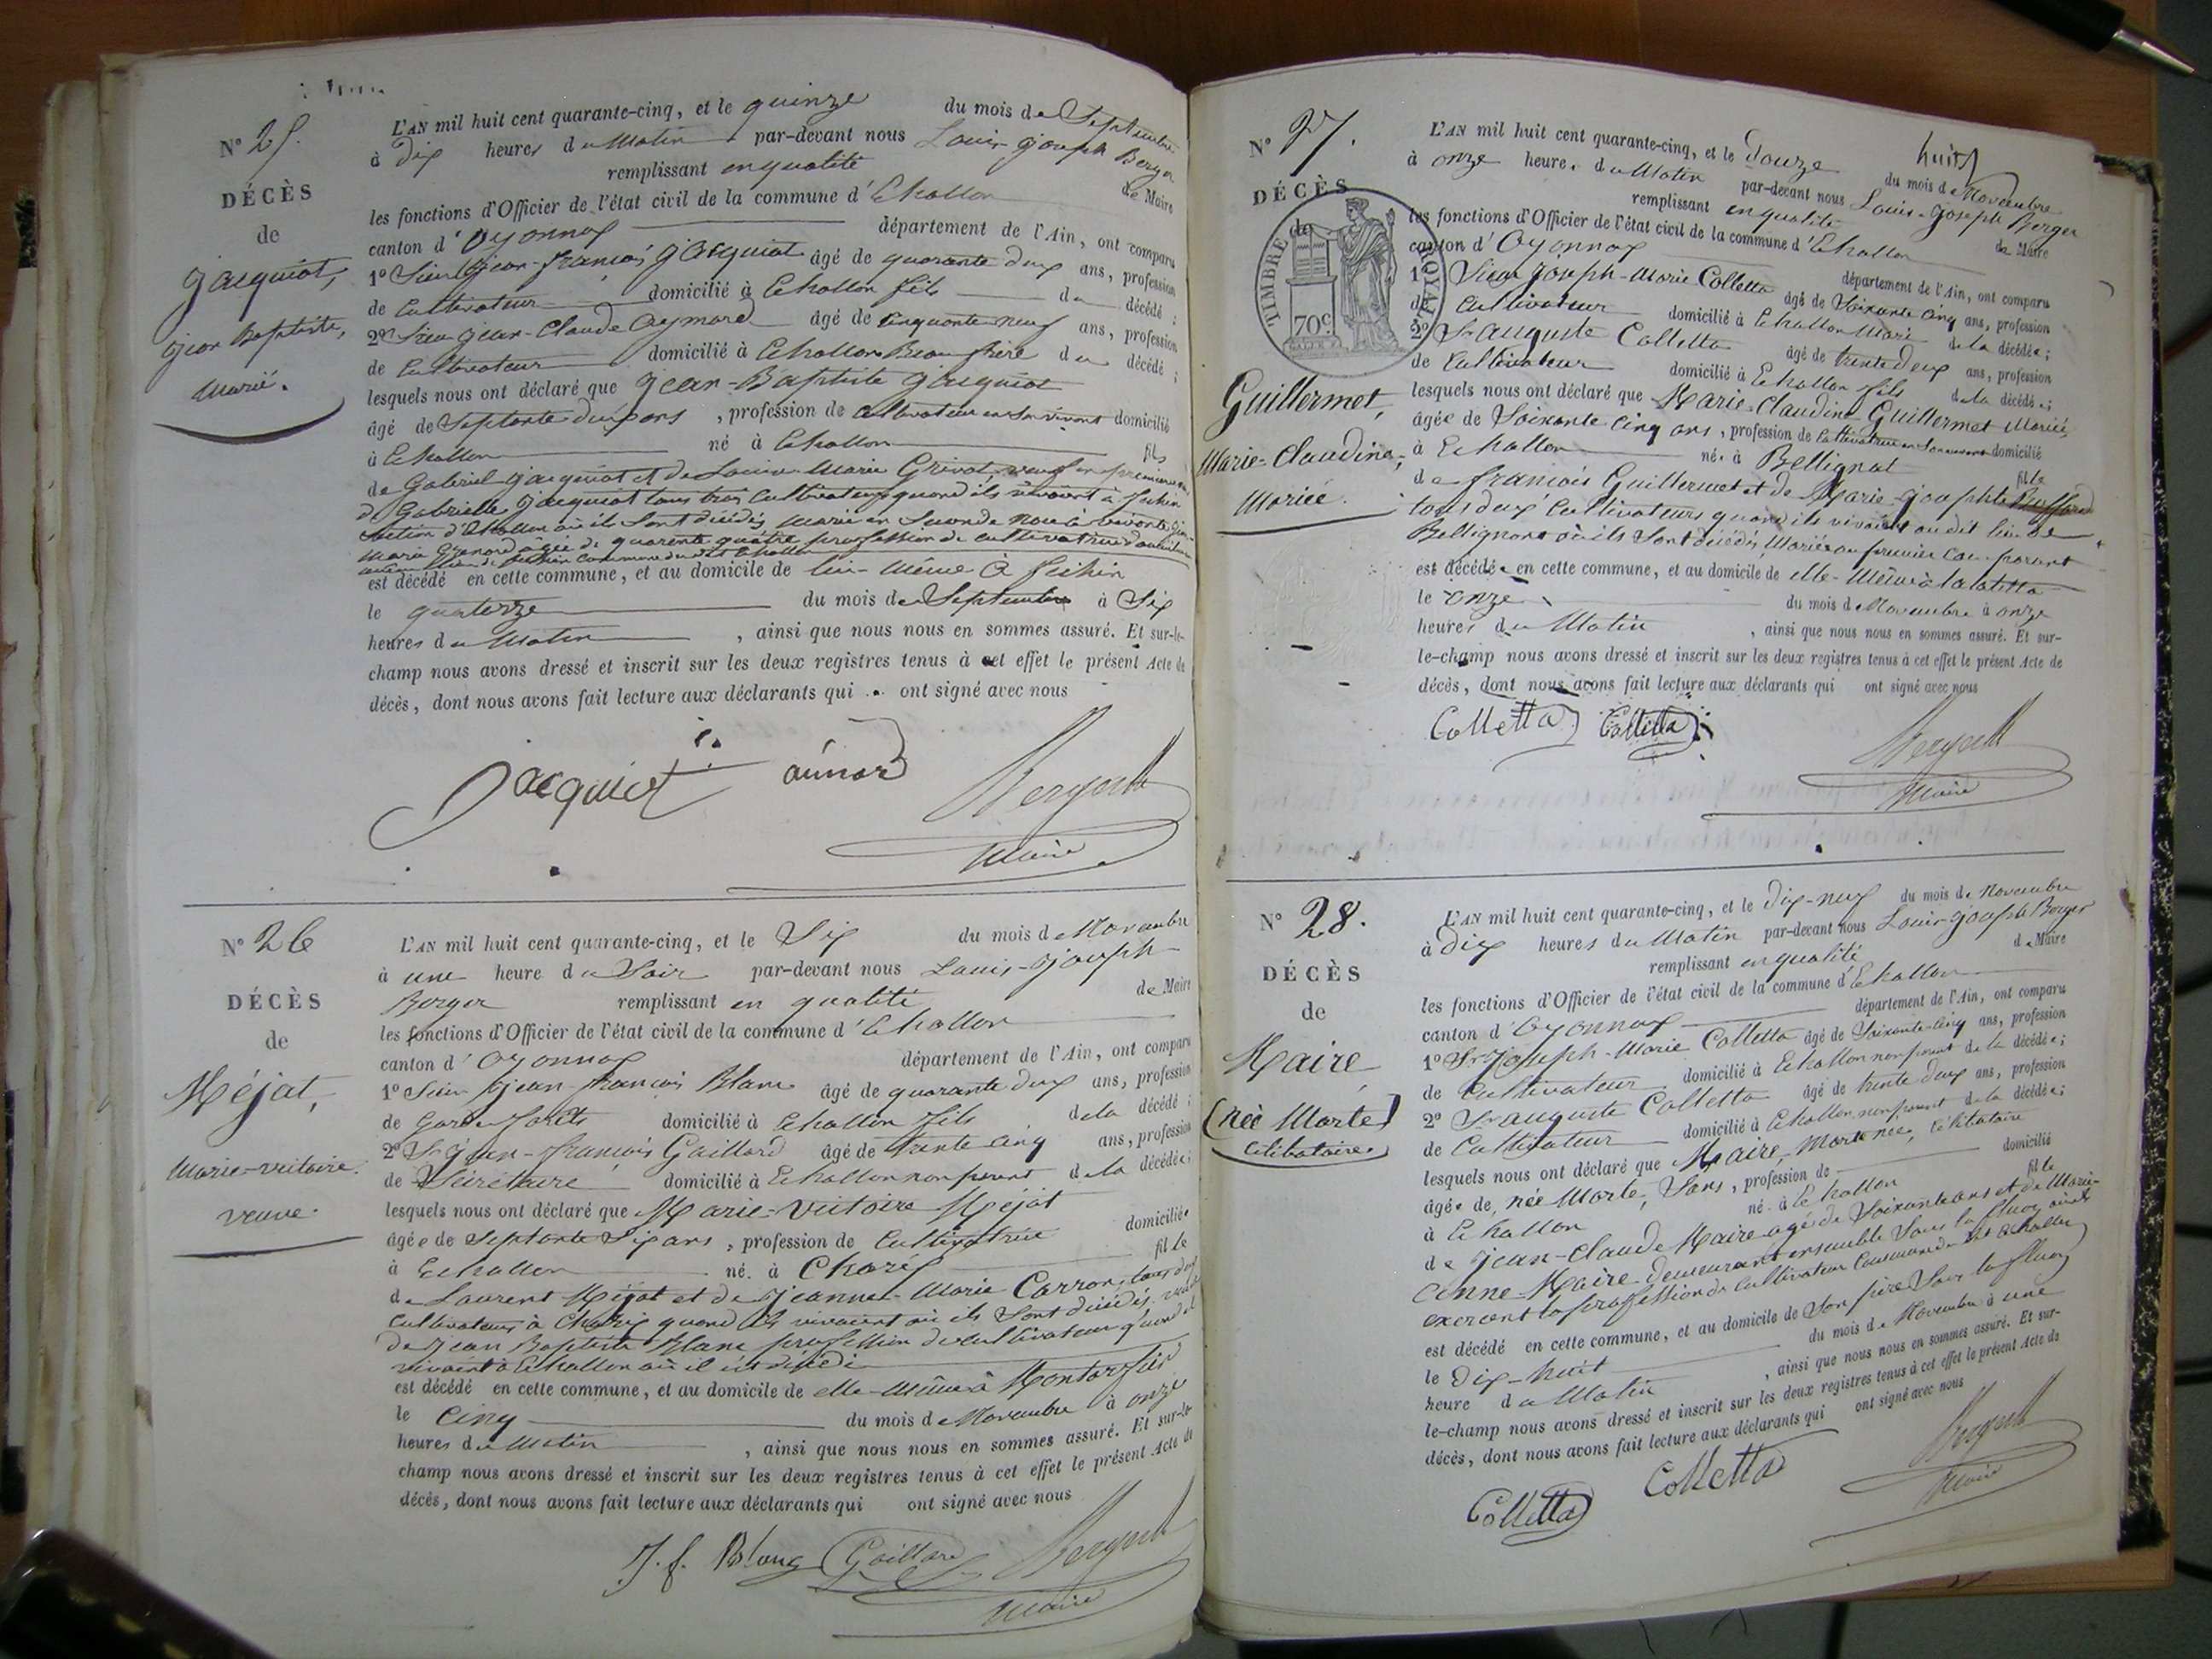 N° 25.
DÉCÈS
de
Jacquiot,
Jean Baptiste,
Marié.
L'AN mil huit cent quarante-cinq, et le quinze du mois de Septembre
à Dix heures du Matin par-devant nous Louis-Joseph Berger
remplissant en qualité de Maire
les fonctions d'Officier de l'état civil de la commune d'Echallon
canton d'Oyonnax département de l'Ain, ont comparu
1° Sieur Jean-François Jacquiot âgé de quarante deux ans, profession
de Cultivateur domicilié à Echallon fils du décédé ;
2° Sieur Jean-Claude Aymard âgé de Cinquante neuf ans, profession
de Cultivateur domicilié à Echallon Beau frère du décédé ;
lesquels nous ont déclaré que Jean-Baptiste Jacquiot
âgé de Septante deux ans , profession de Cultivateur en Son vivant domicilié
à Echallon né à Echallon fils
de Gabriel Jacquiot et de Louise Marie Grivat, veuf en premières
de Gabrielle Jacquiot tous trois Cultivateurs quand ils vivaient à
Section d'Echallon où ils Sont décédés Marié en Seconde Noce à vivante
Marie âgée de quarante quatre profession de cultivatrice
commune du dit Echallon
est décédé en cette commune, et au domicile de lui-même à
le quatorze du mois de Septembre à Six
heures du Matin , ainsi que nous nous en sommes assuré. Et sur-le-
champ nous avons dressé et inscrit sur les deux registres tenus à cet effet le présent Acte de
décès, dont nous avons fait lecture aux déclarants qui ont signé avec nous
Jacquiot aimard Berger
Maire
N° 26
DÉCÈS
de
Méjat,
Marie-Victoire.
veuve.
L'AN mil huit cent quarante-cinq, et le Six du mois de Novembre
à une heure du Soir par-devant nous Louis-Joseph
Berger remplissant en qualité de Maire
les fonctions d'Officier de l'état civil de la commune d'Echallon
canton d'Oyonnax département de l'Ain, ont comparu
1° Sieur Jean-François Blanc âgé de quarante deux ans, profession
de Garde forêts domicilié à Echallon fils de la décédé ;
2° Sr Jean-François Gaillard âgé de trente cinq ans, profession
de Secrétaire domicilié à Echallon non parent de la décédée ;
lesquels nous ont déclaré que Marie-Victoire Méjat
âgée de Septante Six ans , profession de Cultivatrice domiciliée
à Echallon né à Charix fille
de Laurent Méjat et de Jeanne-Marie Carron, tous deux
Cultivateurs à Charix quand ils vivaient où ils Sont décédés, veuve
de Jean Baptiste Blanc profession de cultivateur quand il
vivait à Echallon où il est décédé
est décédé en cette commune, et au domicile de elle-même à
le Cinq du mois de Novembre à onze
heures du Matin , ainsi que nous nous en sommes assuré. Et sur-le-
champ nous avons dressé et inscrit sur les deux registres tenus à cet effet le présent Acte de
décès, dont nous avons fait lecture aux déclarants qui ont signé avec nous
J. f. Blanc Gaillard Berger
Maire
N° 27.
DÉCÈS
de
TIMBRE ROYAL
70c
Guillermet,
Marie-Claudine,
Mariée.
L'AN mil huit cent quarante-cinq, et le Douze du mois de Novembre
à onze heures du Matin par-devant nous Louis-Joseph Berger
remplissant en qualité de Maire
les fonctions d'Officier de l'état civil de la commune d'Echallon
canton d'Oyonnax département de l'Ain, ont comparu
1° Sieur Joseph-Marie Colletta âgé de Soixante cinq ans, profession
de Cultivateur domicilié à Echallon Mari de la décédée ;
2° Sr Auguste Colletta âgé de trente deux ans, profession
de Cultivateur domicilié à Echallon fils de la décédée ;
lesquels nous ont déclaré que Marie-Claudine Guillermet Mariée,
âgée de Soixante Cinq ans , profession de Cultivatrice en Son vivant domicilié
à Echallon née à Bellignat fille
de François Guillermet et de Marie-Josephte
tous deux Cultivateurs quand ils vivaient au dit lieu de
Bellignat où ils Sont décédés, Mariée au premier Comparant
est décédée en cette commune, et au domicile de elle-Même à
le onze du mois de Novembre à onze
heures du Matin , ainsi que nous nous en sommes assuré. Et sur-
le-champ nous avons dressé et inscrit sur les deux registres tenus à cet effet le présent Acte de
décès, dont nous avons fait lecture aux déclarants qui ont signé avec nous
Colletta Colletta Berger
Maire
N° 28.
DÉCÈS
de
Maire
(née Morte)
célibataire
L'AN mil huit cent quarante-cinq, et le Dix-neuf du mois de Novembre
à Dix heures du Matin par-devant nous Louis-Joseph Berger
remplissant en qualité de Maire
les fonctions d'Officier de l'état civil de la commune d'Echallon
canton d'Oyonnax département de l'Ain, ont comparu
1° Sr Joseph-Marie Colletta âgé de Soixante-cinq ans, profession
de Cultivateur domicilié à Echallon non parent de la décédée ;
2° Sr Auguste Colletta âgé de trente deux ans, profession
de Cultivateur domicilié à Echallon non parent de la décédée ;
lesquels nous ont déclaré que Maire, Morte née, Célibataire
âgée de née Morte, Sans , profession de domicilié
à Echallon né à Echallon fille
de Jean-Claude Maire âgé de Soixante ans et de Marie-
Anne Maire demeurant ensemble Sous la
exercent la profession de Cultivateur Commune du dit Echallon
est décédé en cette commune, et au domicile de Son père Sous la
le Dix-huit du mois de Novembre à une
heure du Matin , ainsi que nous nous en sommes assuré. Et sur-
le-champ nous avons dressé et inscrit sur les deux registres tenus à cet effet le présent Acte de
décès, dont nous avons fait lecture aux déclarants qui ont signé avec nous
Colletta Colletta Berger
Maire